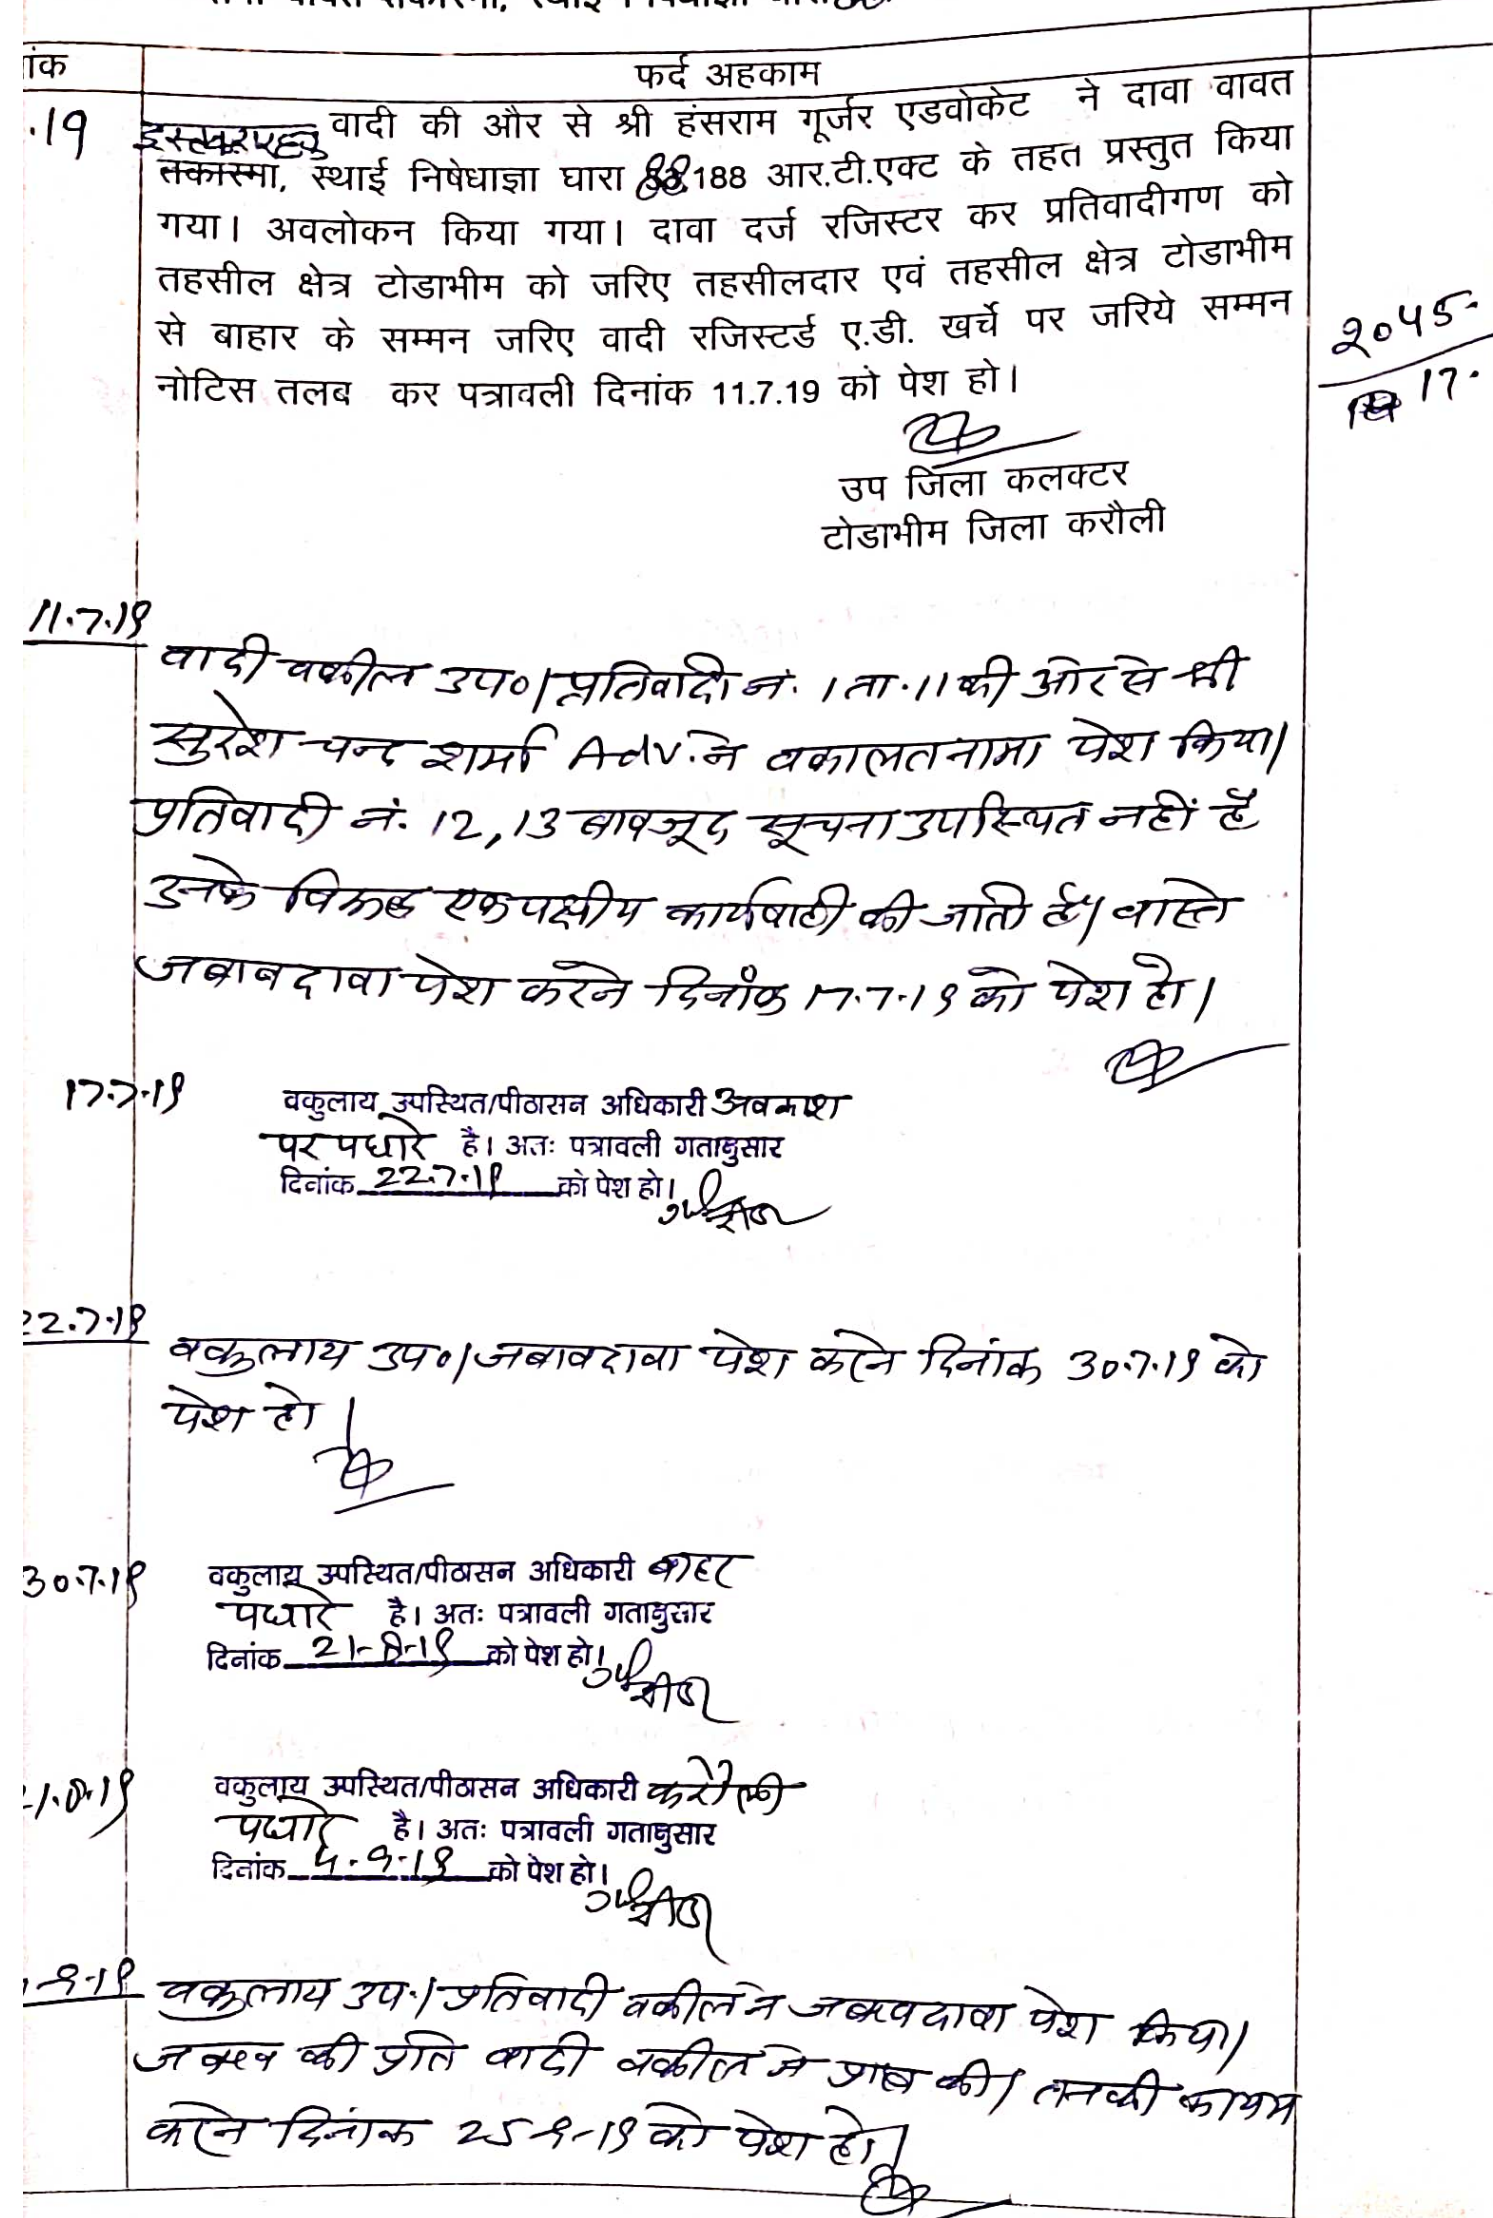 ांक
फर्द अहकाम
.19
वादी की और से श्री हंसराम गूर्जर एडवोकेट ने दावा वावत
तकास्मा, स्थाई निषेधाज्ञा घारा 88,188 आर.टी.एक्ट के तहत प्रस्तुत किया
गया। अवलोकन किया गया। दावा दर्ज रजिस्टर कर प्रतिवादीगण को
तहसील क्षेत्र टोडाभीम को जरिए तहसीलदार एवं तहसील क्षेत्र टोडाभीम
से बाहार के सम्मन जरिए वादी रजिस्टर्ड ए.डी. खर्चे पर जरिये सम्मन
नोटिस तलब कर पत्रावली दिनांक 11.7.19 को पेश हो।
2045
17.
उप जिला कलक्टर
टोडाभीम जिला करौली
11.7.19
वादी वकील उप०। प्रतिवादी नं. 1 ता. 11 की ओर से श्री
सुरेश चन्द शर्मा Adv. ने वकालतनामा पेश किया।
प्रतिवादी नं. 12, 13 बावजूद सूचना उपस्थित नहीं है
उनके विरूद्ध एकपक्षीय कार्यवाही की जाती है। वास्ते
जबाबदावा पेश करने दिनाँक 17.7.19 को पेश हो।
17.7.19
वकुलाय उपस्थित/पीठासन अधिकारी अवकाश
पर पधारे है। अतः पत्रावली गतानुसार
दिनांक 22.7.19 को पेश हो।
22.7.19
वकुलाय उप०। जबाबदावा पेश करने दिनांक 30.7.19 को
पेश हो।
30.7.19
वकुलाय उपस्थित/पीठासन अधिकारी बाहर
पधारे है। अतः पत्रावली गतानुसार
दिनांक 21-8-19 को पेश हो।
1.8.19
वकुलाय उपस्थित/पीठासन अधिकारी करौली
पधारे है। अतः पत्रावली गतानुसार
दिनांक 4.9.19 को पेश हो।
-9-19
वकुलाय उप.। प्रतिवादी वकील ने जबाबदावा पेश किया।
जबाब की प्रति वादी वकील ने प्राप्त की। तनकी कायम
करने दिनांक 25-9-19 को पेश हो।